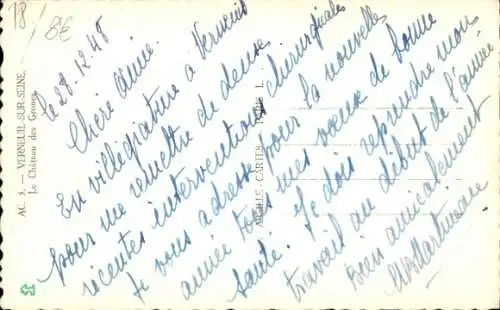 18/
8€
AC. 3. — VERNEUIL-SUR-SEINE
Le Château des Groux
le 28.12.48
Chère amie.
En villégiature à Verneuil
pour me remettre de deux
récentes interventions chirurgicales
je vous adresse pour la nouvelle
année tous mes vœux de bonne
santé. Je dois reprendre mon
travail au début de l'année
bien amicalement